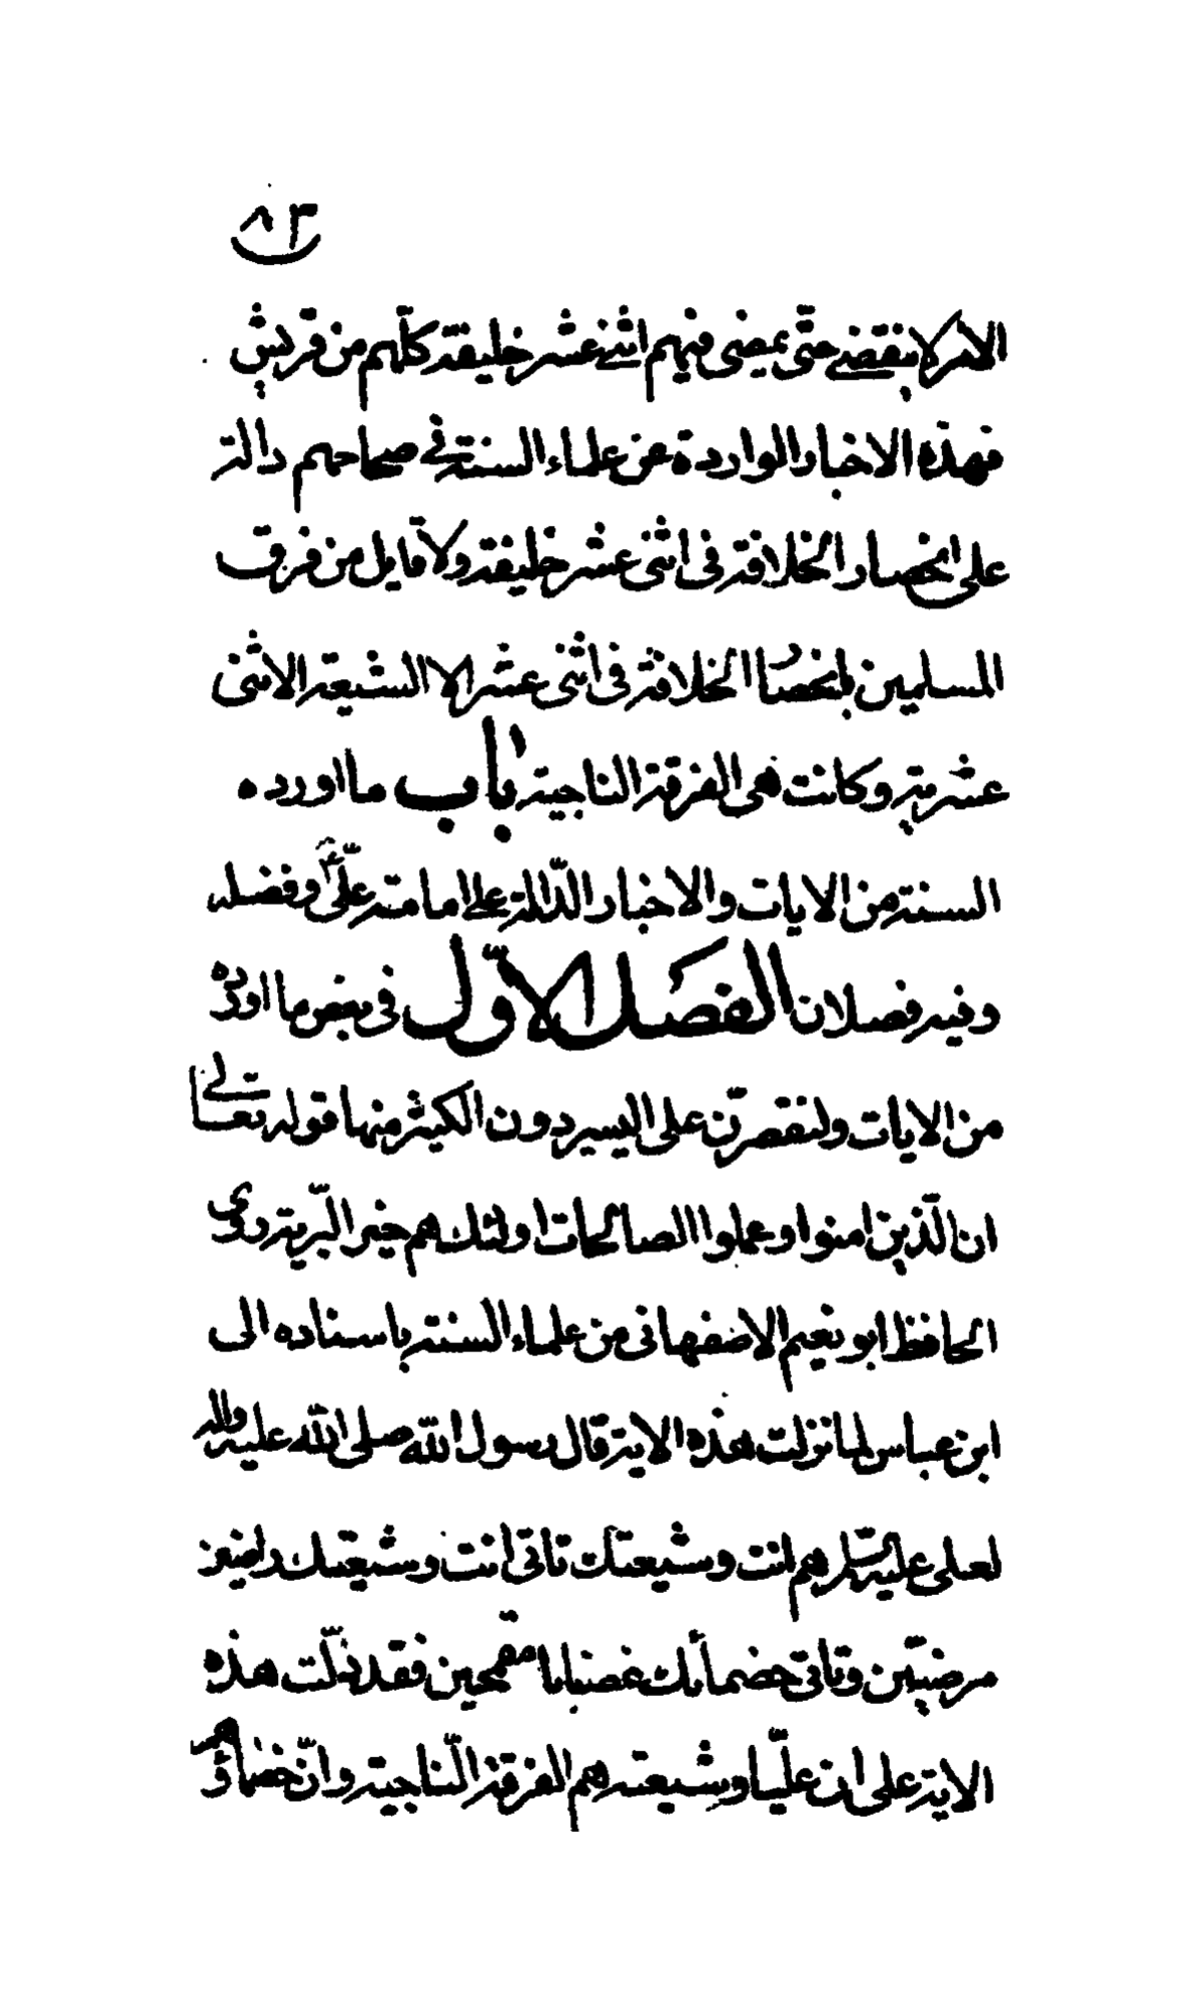 ٨٣
الامر لا ينقضى حتّى يمضى فيهم اثنى عشر خليفة كلّهم من قريش
فهذه الاخبار الواردة عن علماء السنة فى صحاحهم دالة
على انحصار الخلافة فى اثنى عشر خليفة ولا قايل من فرق
المسلمين بانحصار الخلافة فى اثنى عشر الا الشيعة الاثنى
عشرية وكانت هى الفرقة الناجية باب ما اورده
السنة من الايات والاخبار الدّالة على امامة علىّ وفضله
وفيه فصلان الفصل الاوّل فى بعض ما اورده
من الايات ولنقصرّن على اليسير دون الكثير منها قوله تعالى
ان الّذين امنوا وعملوا الصالحات اولئك هم خير البّرية روى
الحافظ ابو نعيم الاصفهانى من علماء السنة باسناده الى
ابن عباس لما نزلت هذه الاية قال رسول الله صلى الله عليه واله
لعلى عليه السلم هم انت وشيعتك تاتى انت وشيعتك راضين
مرضيّين وتاتى خضماؤك غضبابا مقمحين فقد دلّت هذه
الاية على ان عليّا وشيعته هم الفرقة النّاجية وانّ خضماؤهم